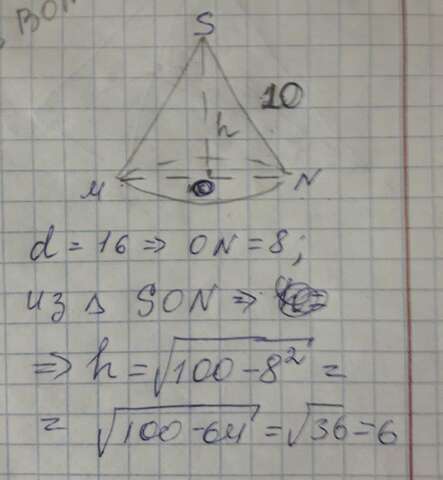 S
10
h
M
O
N
d = 16 => ON = 8;
из Δ SON =>
=> h = √(100 - 8²) =
= √(100 - 64) = √36 = 6